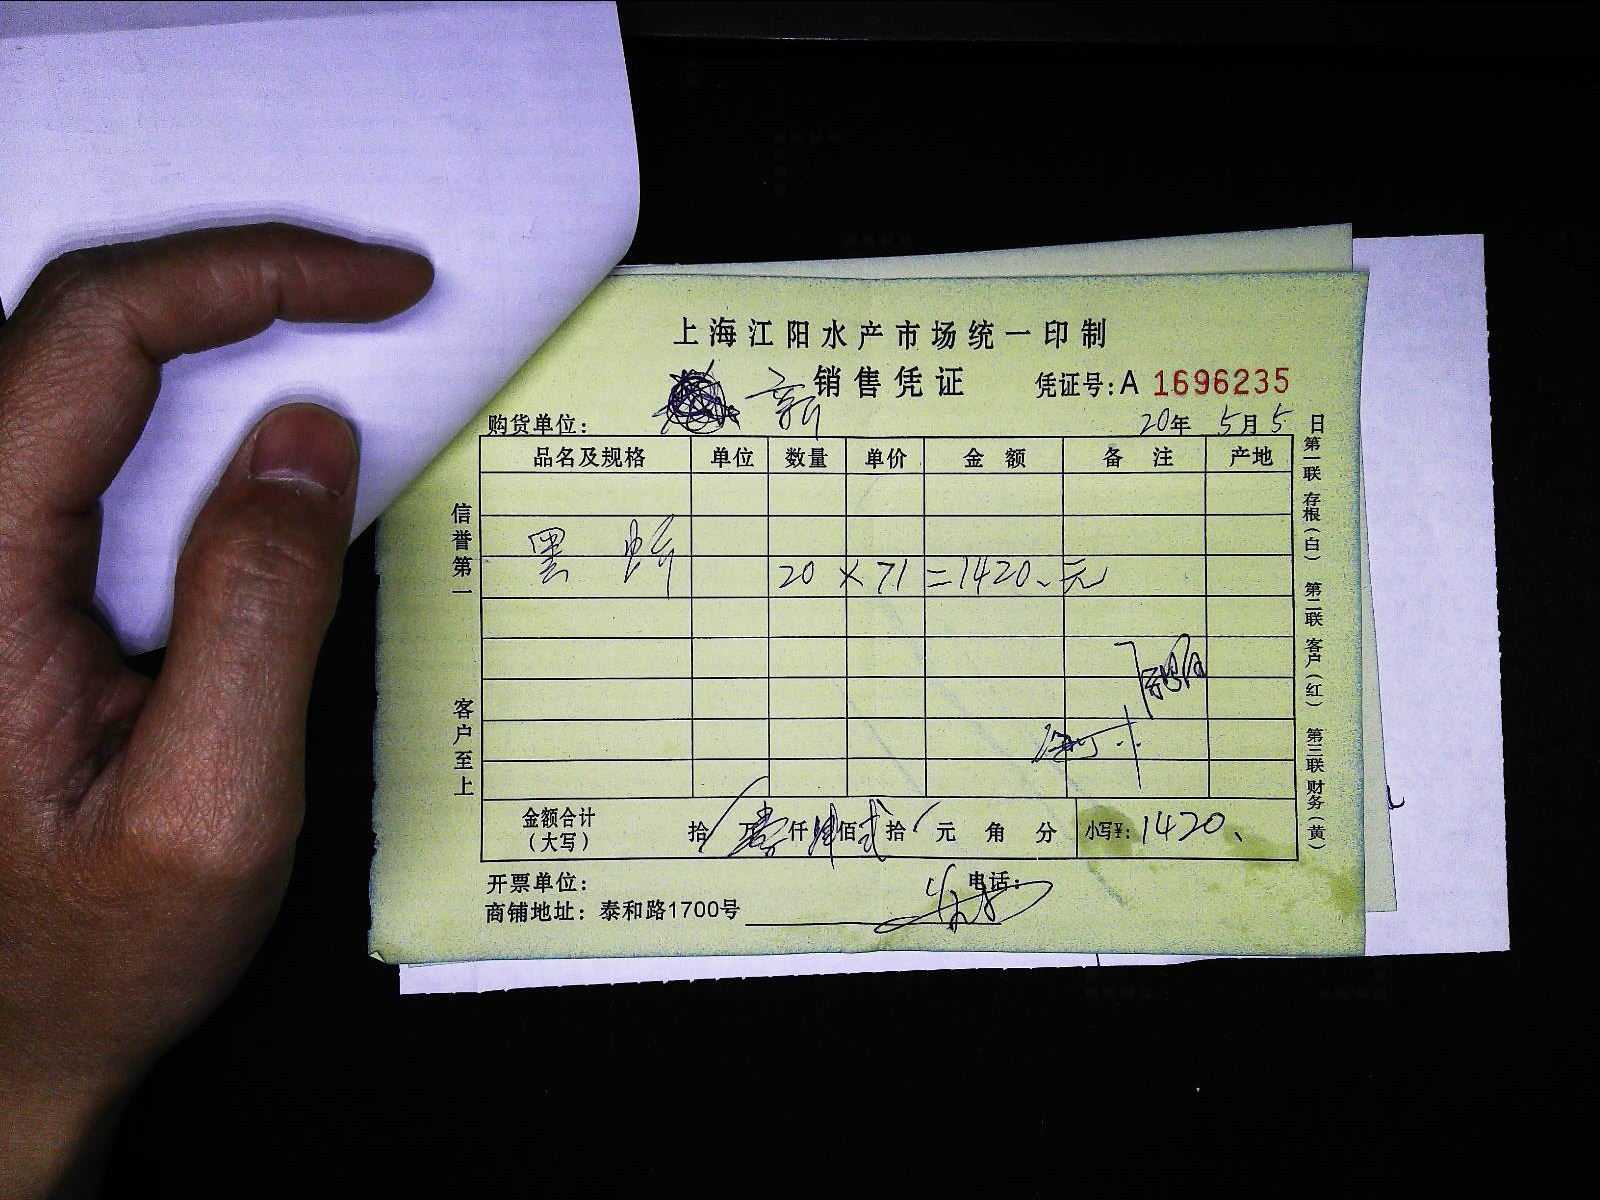 上海江阳水产市场统一印制
销售凭证
凭证号:A 1696235
购货单位:
20年 5月5日
品名及规格 单位 数量 单价 金额 备注 产地
黑虾
20×71=1420、元
金额合计(大写) 拾 万壹仟肆佰贰拾 元 角 分 小写¥:1420、
开票单位: 电话:
商铺地址:泰和路1700号
信誉第一
客户至上
第一联 存根(白) 第二联 客户(红) 第三联 财务(黄)